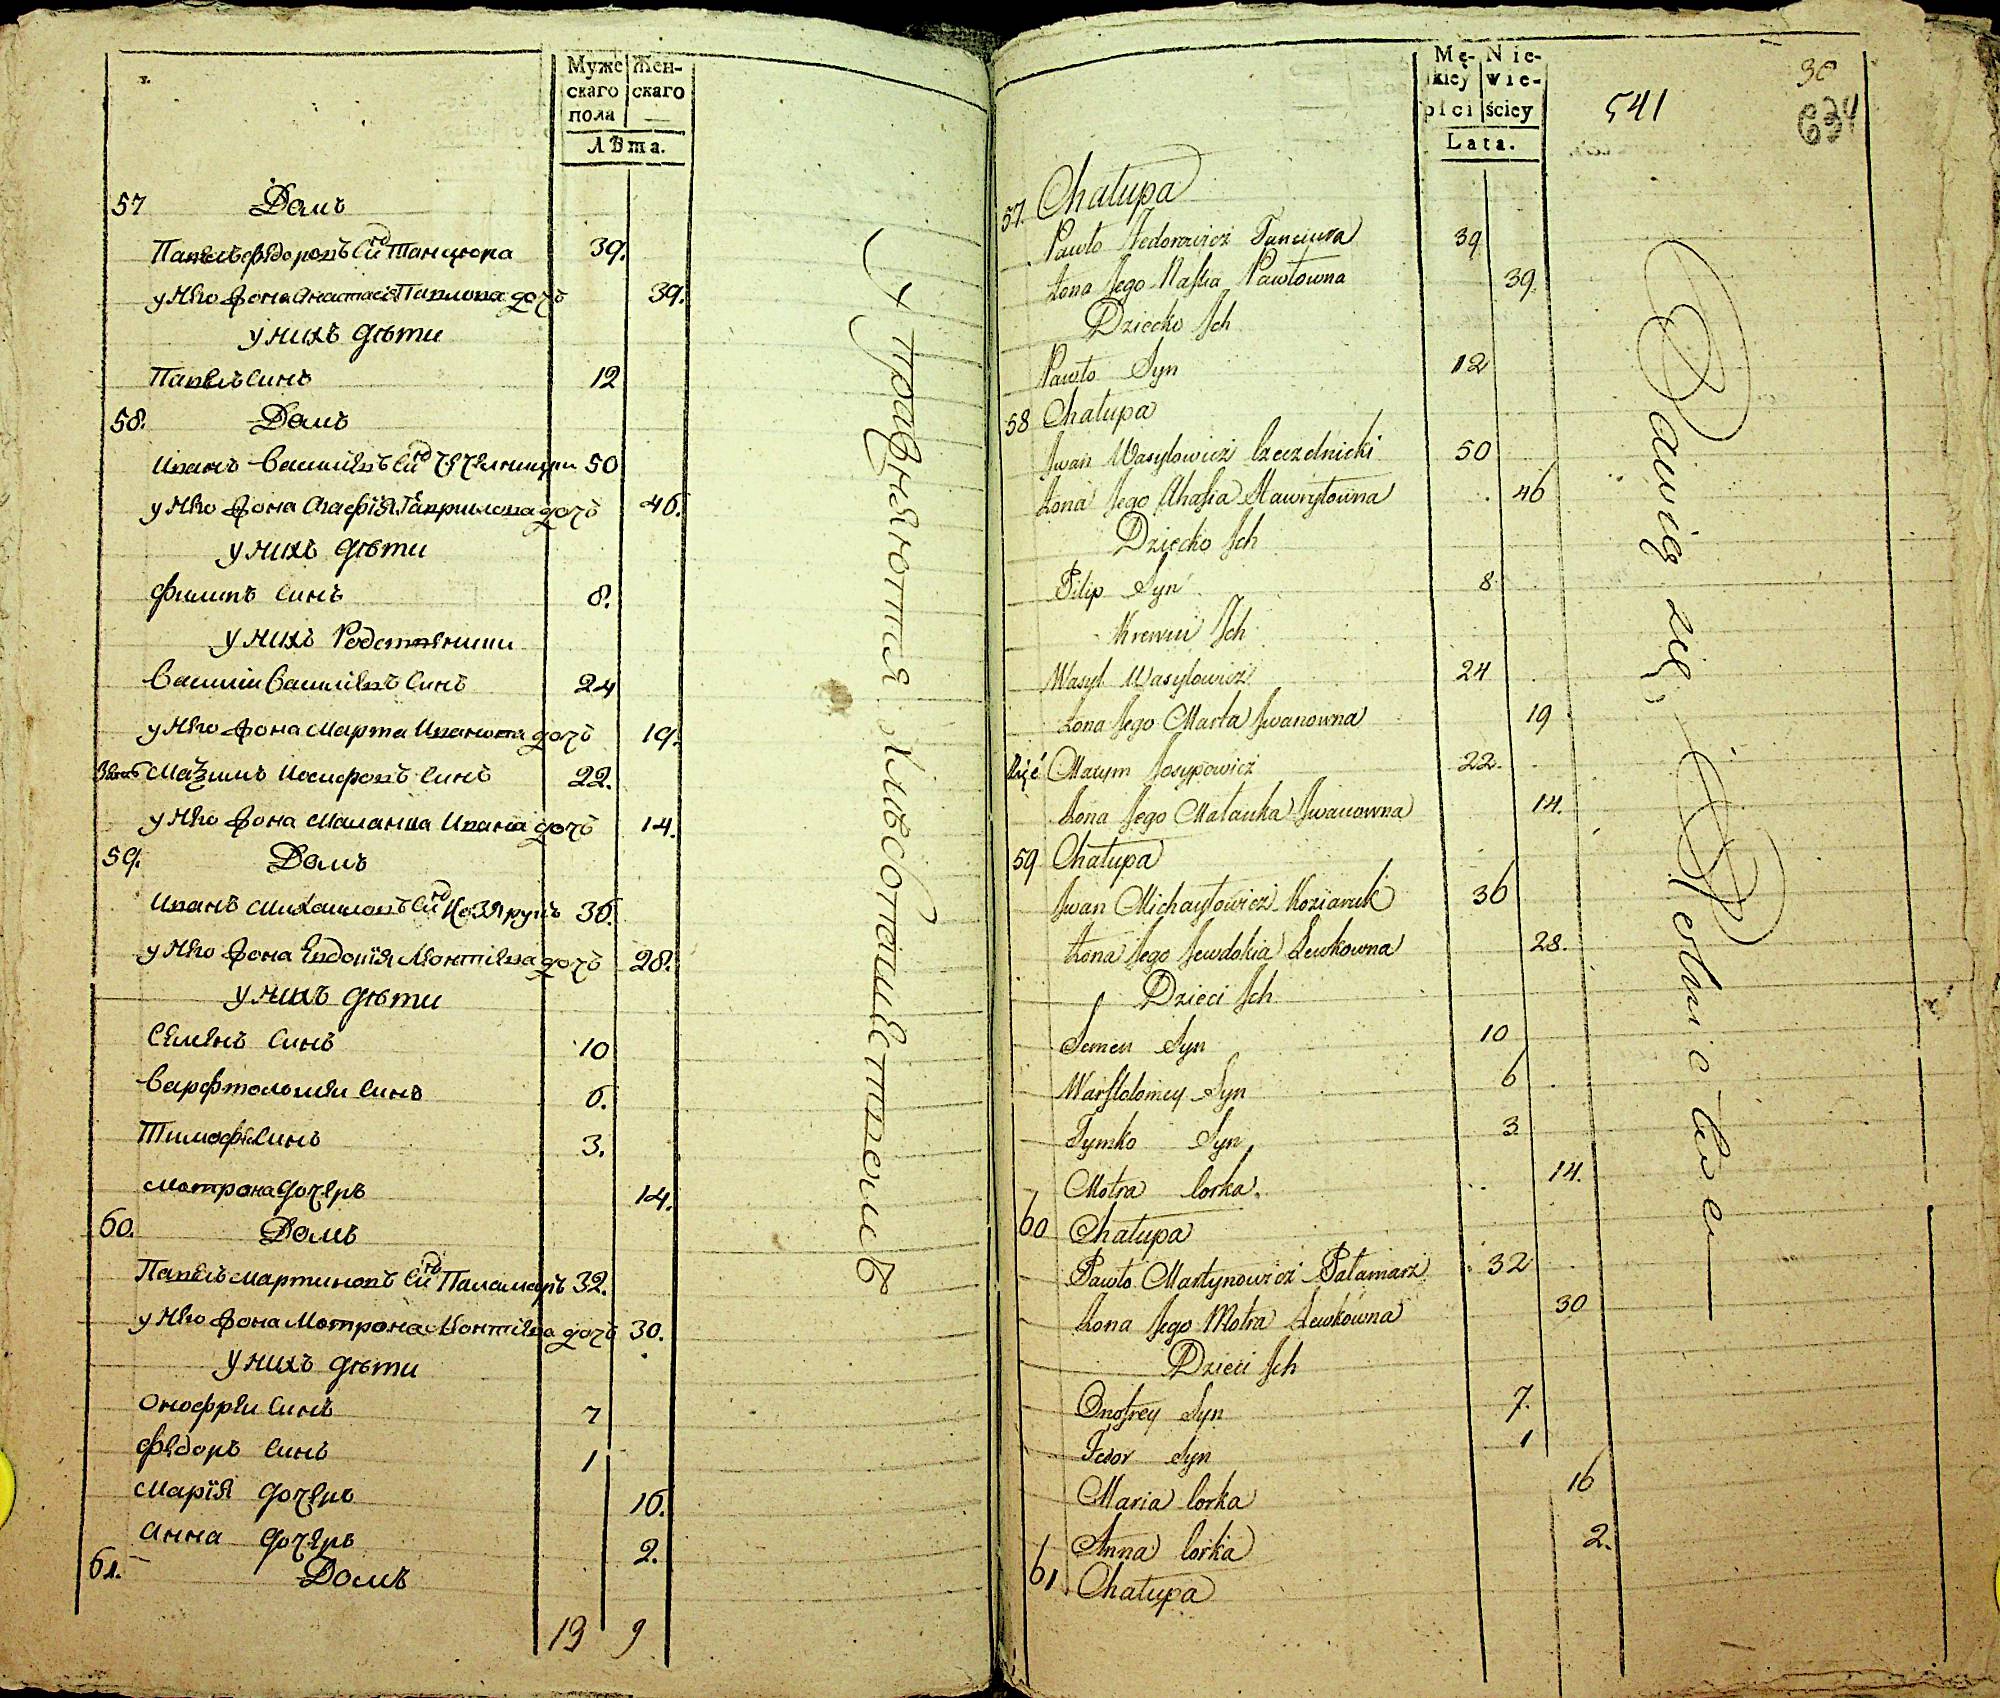 Муже Жен-
скаго скаго
пола
Лѣта.
57 Домъ
Павелъ Федоровъ синъ Танцюра 39.
у Него жона Анастасія Павлова дочь 39.
у нихъ дѣти
Павелъ синъ 12
58. Домъ
Иванъ Василіевъ синъ Чечелницки 50
у Него жона Агафія Гаврилова дочь 46.
у нихъ дѣти
Филипъ синъ 8.
у нихъ Родственники
Василій Василіевъ синъ 24
у Него жона Марта Иванова дочь 19.
Зять Маѯимъ Иосифовъ синъ 22.
у Него жона Маланка Иванова дочь 14.
59. Домъ
Иванъ Михаиловъ синъ Козярукъ 36.
у Него жона Евдокія Леонтіева дочь 28.
у нихъ дѣти
Семенъ синъ 10
Варфтоломеи синъ 6.
Тимофеи синъ 3.
Мотрона дочерь 14.
60. Домъ
Павелъ Мартиновъ синъ Паламаръ 32.
у Него жона Мотрона Леонтіева дочь 30.
у нихъ дѣти
Онофреи синъ 7
Федоръ синъ 1
Марія дочерь 16.
Анна дочерь 2.
61. Домъ
13 9
упражняются Хлебопашеством
Mę- Nie-
skiey wie-
płci ściey
Lata.
541
30
634
57. Chałupa
Pawło Fedorowicz Tanciura 39
Żona Jego Nastia Pawłowna 39.
Dziecko Ich
Pawło Syn 12
58 Chałupa
Iwan Wasylowicz Czeczelnicki 50
Żona Jego Ahafia Hawryłowna 46
Dziecko Ich
Filip Syn 8
Krewni Ich
Wasyl Wasylowicz 24
Żona Jego Marta Iwanowna 19
Zięć Maxym Josypowicz 22.
Żona Jego Małanka Iwanowna 14.
59 Chałupa
Iwan Michayłowicz Koziaruk 36
Żona Jego Jewdokia Lewkowna 28.
Dzieci Ich
Semen Syn 10
Warftolomey Syn 6
Tymko Syn 3
Motra Corka. 14.
60 Chałupa
Pawło Martynowicz Pałamarz 32
Żona Jego Motra Lewkowna 30
Dzieci Ich
Onofrey Syn 7.
Fedor Syn 1
Maria Corka 16
Anna Corka 2.
61 Chałupa
Bawią się Rolnictwem